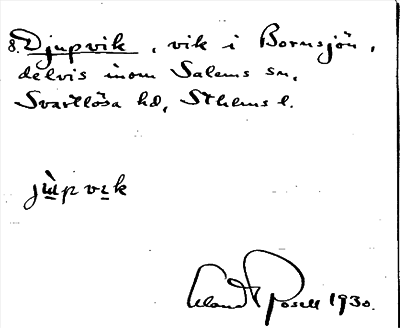 8. Djupvik, vik i Bornsjön,
delvis inom Salems sn,
Svartlösa hd, Sthlms l.
jùpvɪk
1930.